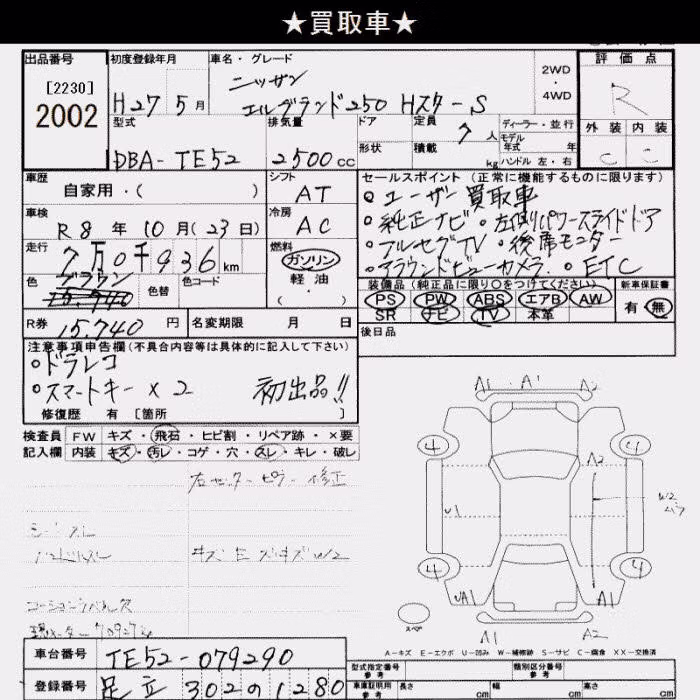 ★買取車★
出品番号 初度登録年月 車名・グレード 評価点
[2230] ニッサン 2WD
2002 H27 5月 エルグランド250 Hスター-S ・4WD R
型式 排気量 ドア 定員 7人 ディーラー・並行 外装 内装
形状 積載 kg モデル年式 年式
DBA-TE52 2500cc ハンドル 左・右 C C
車歴 シフト セールスポイント (正常に機能するものに限ります)
自家用・( ) AT ・ユーザー買取車
車検 冷房 ・純正ナビ ・左側パワースライドドア
R8年10月(23日) AC ・フルセグTV ・後席モニター
走行 燃料 ・アラウンドビューカメラ ・ETC
7万0千936km ガソリン
色 ブラウン 色替 色コード 軽油 装備品(純正品に限り○をつけてください) 新車保証書
15,740 ・( ) PS PW ABS エアB AW 有・無
SR ナビ TV 本革
R券 15,740円 名変期限 月 日 後日品
注意事項申告欄(不具合内容等は具体的に記入して下さい)
・ドラレコ
・スマートキー×2 初出品!!
修復歴 有 [箇所 ]
検査員 FW キズ・飛石・ヒビ割・リペア跡・×要
記入欄 内装 キズ・汚レ・コゲ・穴・スレ・キレ・破レ
右センターピラー修正
シートスレ
ハンドルスレ キズEズキズW2
コーションラベル欠
現メーター70927km
A1 A1 A2
4 4
A2
U1 W2
4 4
UA1 A1
スペア
A1 A2
A-キズ E-エクボ U-凹み W-補修跡 S-サビ C-腐食 XX-交換済
車台番号 TE52-079290 型式指定番号 参考 類別区分番号 参考
登録番号 足立 302の1280 車庫証明用 参考 長さ cm 幅 cm 高さ cm